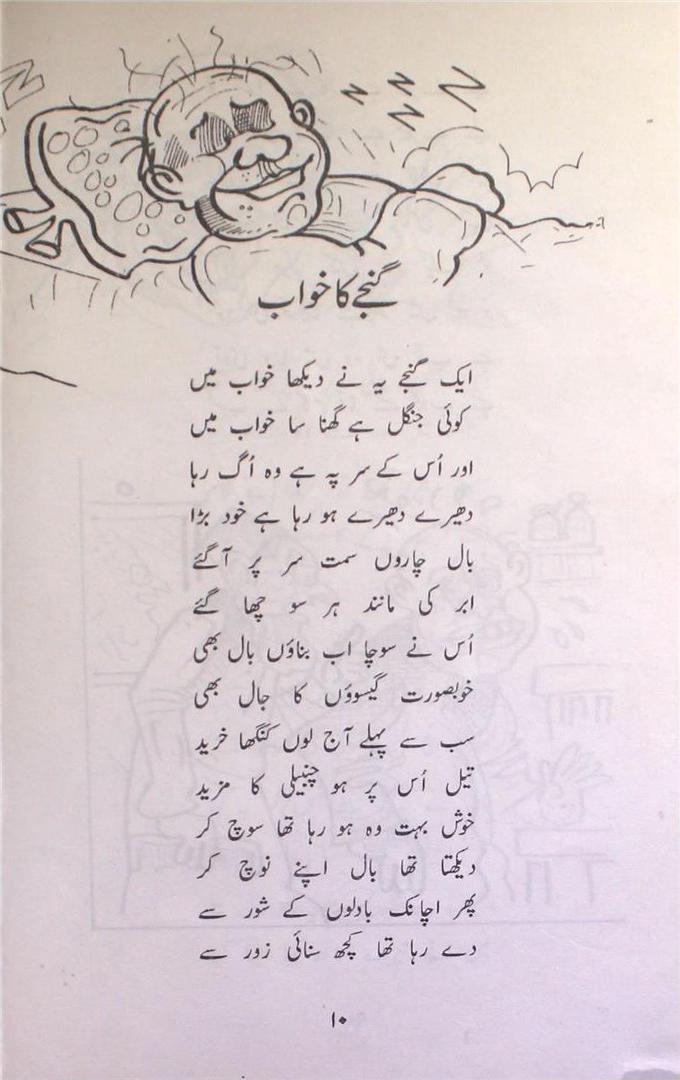 گنجے کا خواب
ایک گنجے یہ نے دیکھا خواب میں
کوئی جنگل ہے گھنا سا خواب میں
اور اُس کے سر پہ ہے وہ اُگ رہا
دھیرے دھیرے ہو رہا ہے خود بڑا
بال چاروں سمت سر پر آگئے
ابر کی مانند ہر سو چھا گئے
اُس نے سوچا اب بناؤں بال بھی
خوبصورت گیسوؤں کا جال بھی
سب سے پہلے آج لوں کنگھا خرید
تیل اُس پر ہو چنبیلی کا مزید
خوش بہت وہ ہو رہا تھا سوچ کر
دیکھتا تھا بال اپنے نوچ کر
پھر اچانک بادلوں کے شور سے
دے رہا تھا کچھ سنائی زور سے
۱۰